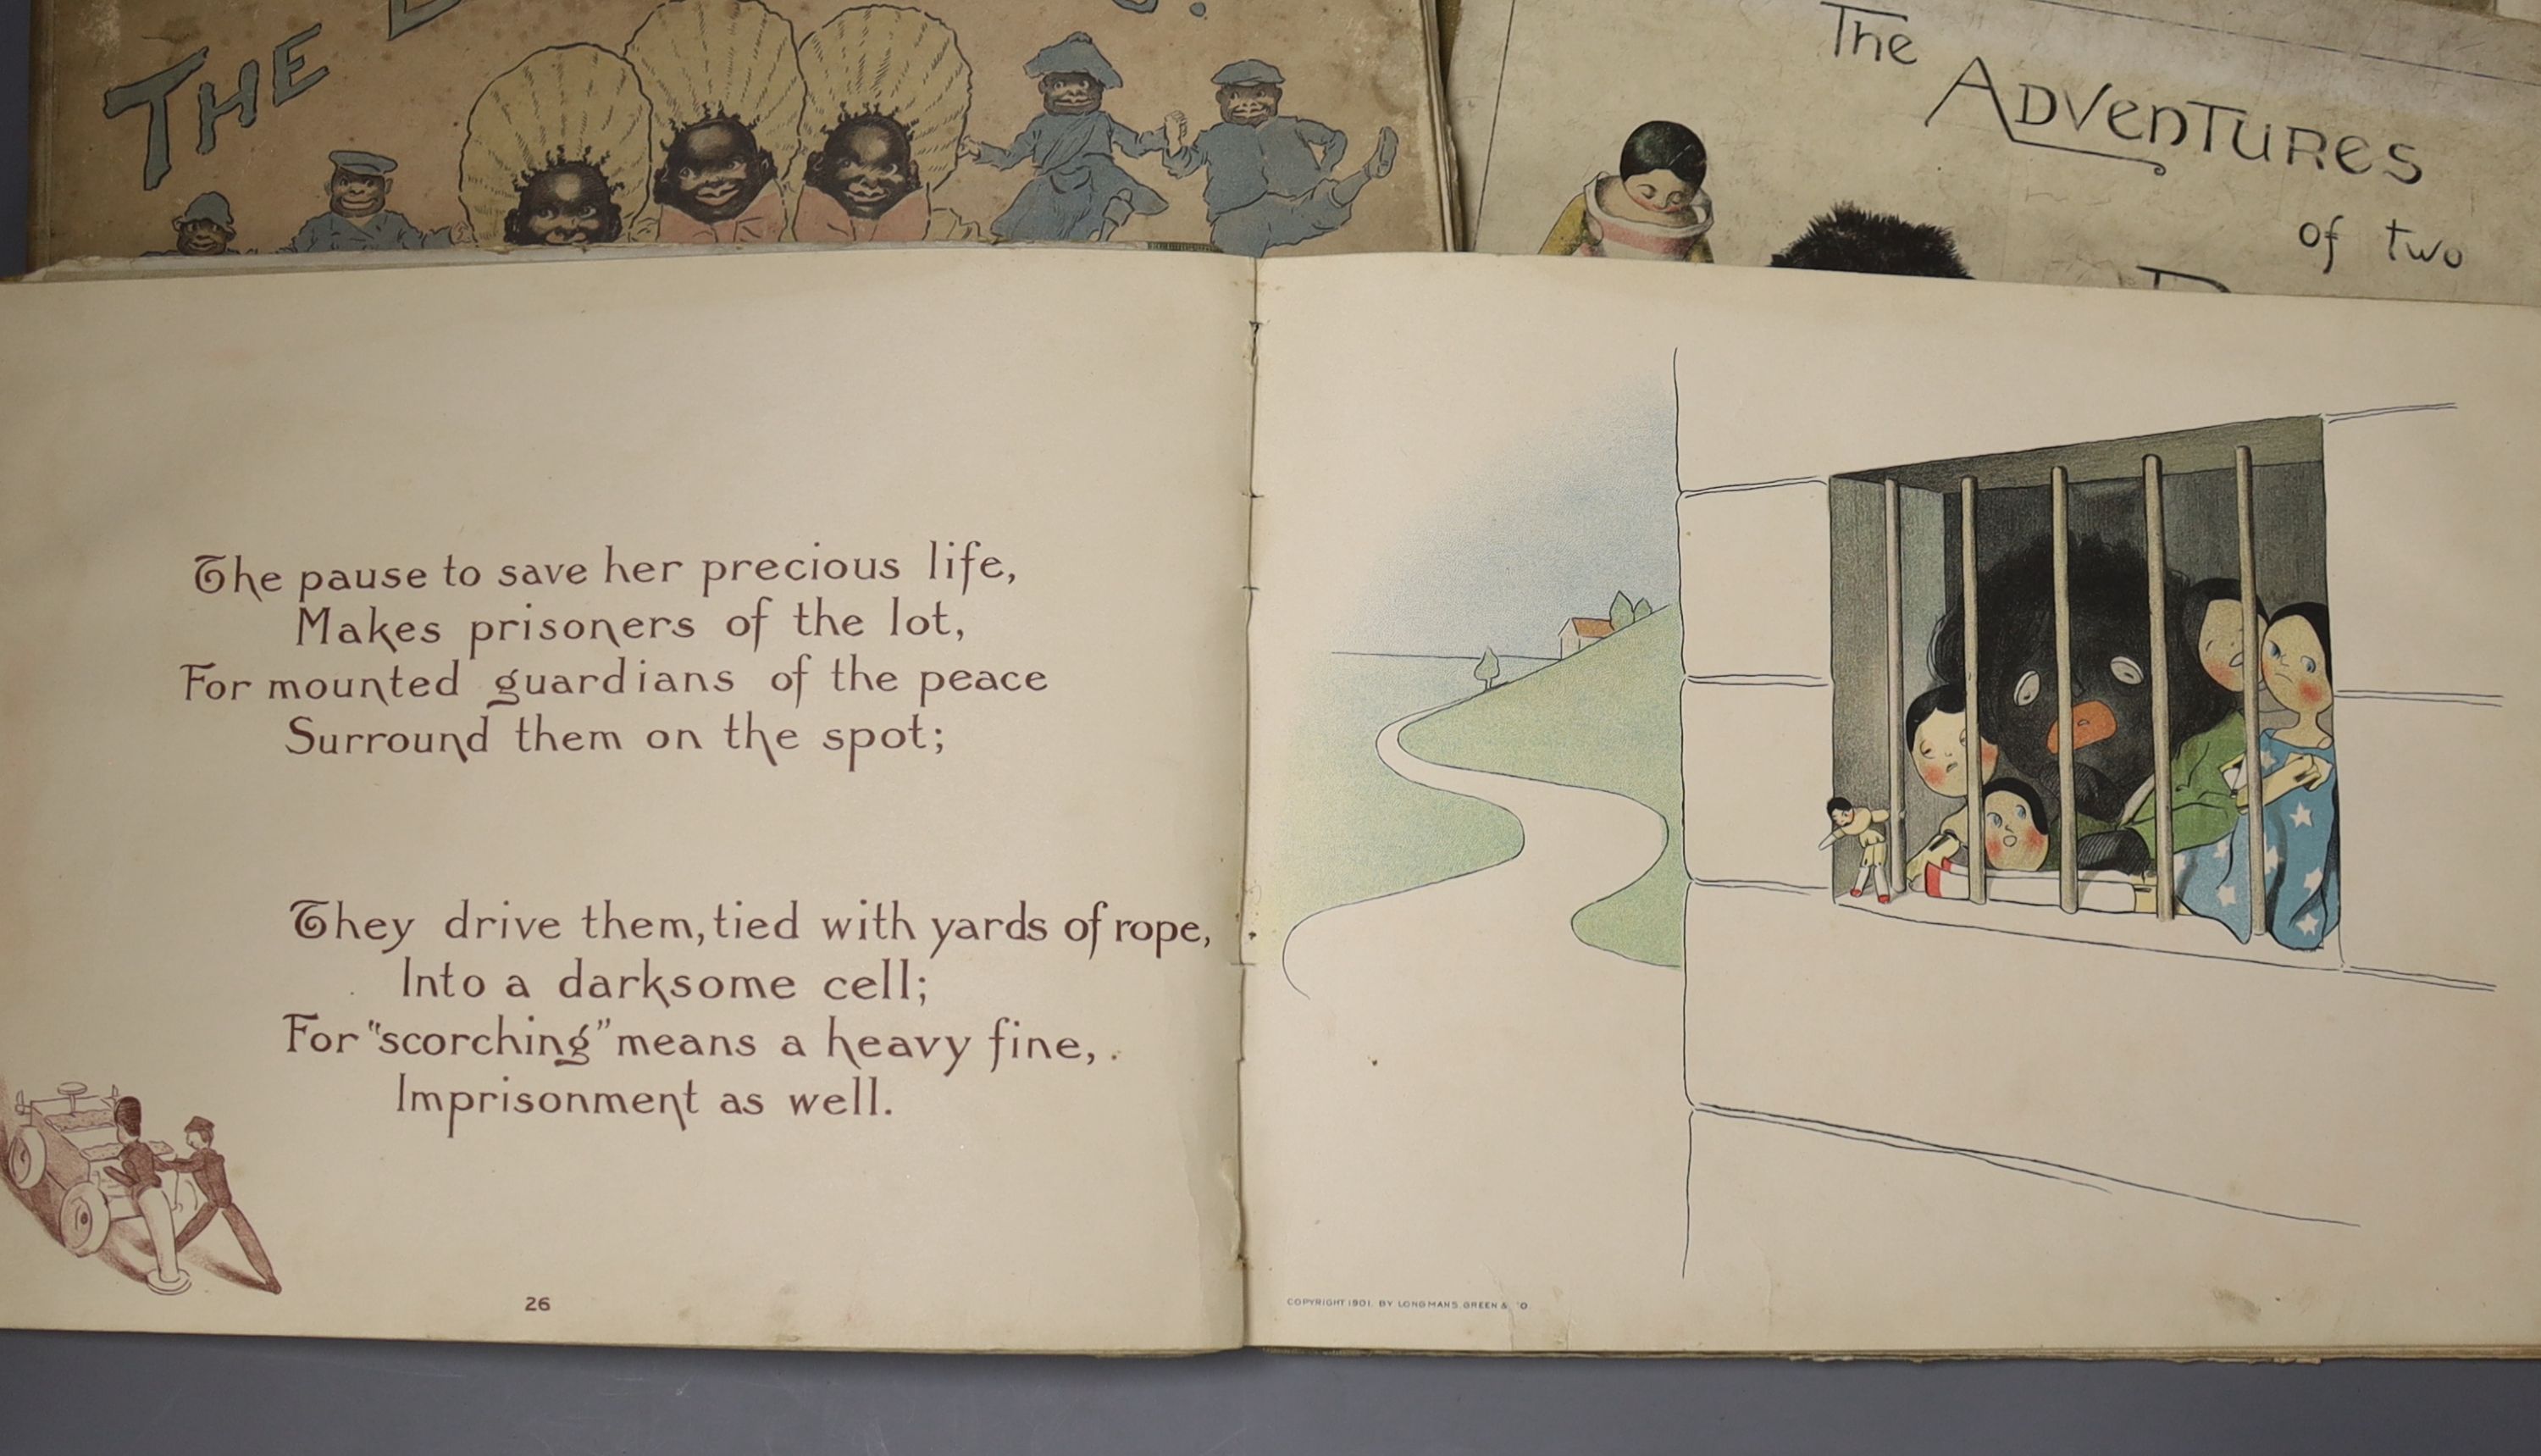 THE
The
ADVENTURES
of two
The pause to save her precious life,
Makes prisoners of the lot,
For mounted guardians of the peace
Surround them on the spot;
They drive them, tied with yards of rope,
Into a darksome cell;
For "scorching" means a heavy fine,
Imprisonment as well.
26
COPYRIGHT 1901. BY LONGMANS, GREEN &